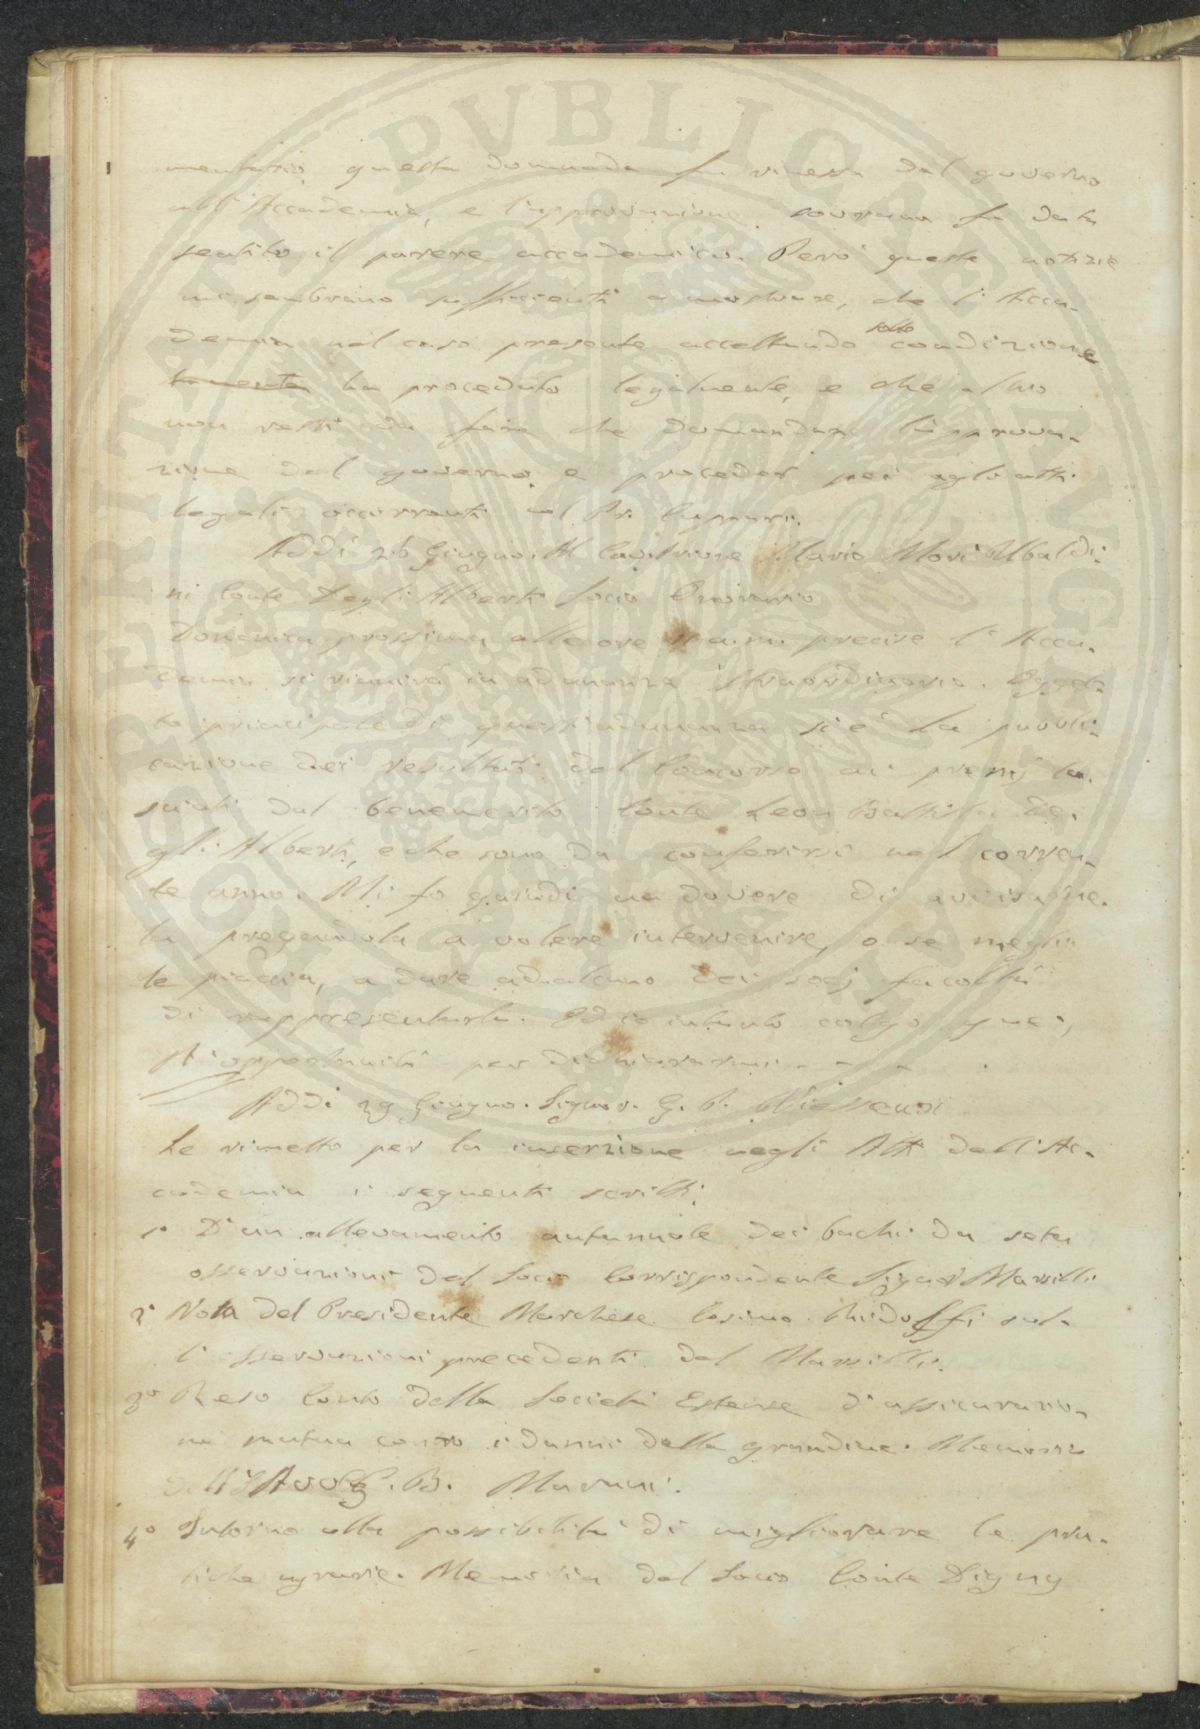 mentario questa domanda fu rimessa dal governo
all'Accademia, e l'approvazione sovrana fu data
sentito il parere accademico. Però queste notizie
mi sembrano sufficienti a mostrare, che l'Acca-
demia nel caso presente accettando sotto condizione
ha proceduto legalmente, e che altro
non resti da fare che domandare l'approva-
zione del governo e procedere poi agli atti
legali occorrenti col Pr.
Addì 26 Giugno. Al Mario Mori Ubaldi-
ni Conte Degli Alberti Socio Onorario
Domenica prossima alle ore 11 a.m. precise l'Acca-
demia si riunirà in adunanza straordinaria. Ogget-
to principale di quest'adunanza si è la pubbli-
cazione dei resultati del Concorso ai premj la-
sciati dal benemerito Conte Leon Battista De-
gli Alberti, e che sono da conferirsi nel corren-
te anno. Mi fo quindi un dovere di avvisarne-
la pregandola a volere intervenire, o se meglio
le piaccia, a dare ad alcuno dei socj facoltà
di rappresentarla. Ed io intanto colgo ques-
t'opportunità per dichiararmi - - -
Addì 29 Giugno. Signor. G. P. Vieusseux
Le rimetto per la inserzione negli Atti dell'Ac-
cademia i seguenti scritti:
1° D'un allevamento autunnale dei bachi da seta
osservazioni del Socio Corrispondente Signor Marsili
2° Nota del Presidente Marchese Cosimo Ridolfi sul-
l'osservazioni precedenti del Marsili.
3° Reso Conto della Società Estense d'assicurazio-
ne mutua contro i danni della grandine. Memoria
dell'Avv G. B.
4° Intorno alla possibilità di migliorare le pra-
tiche agrarie. Memoria del Socio Conte Digny
PVBLICAE